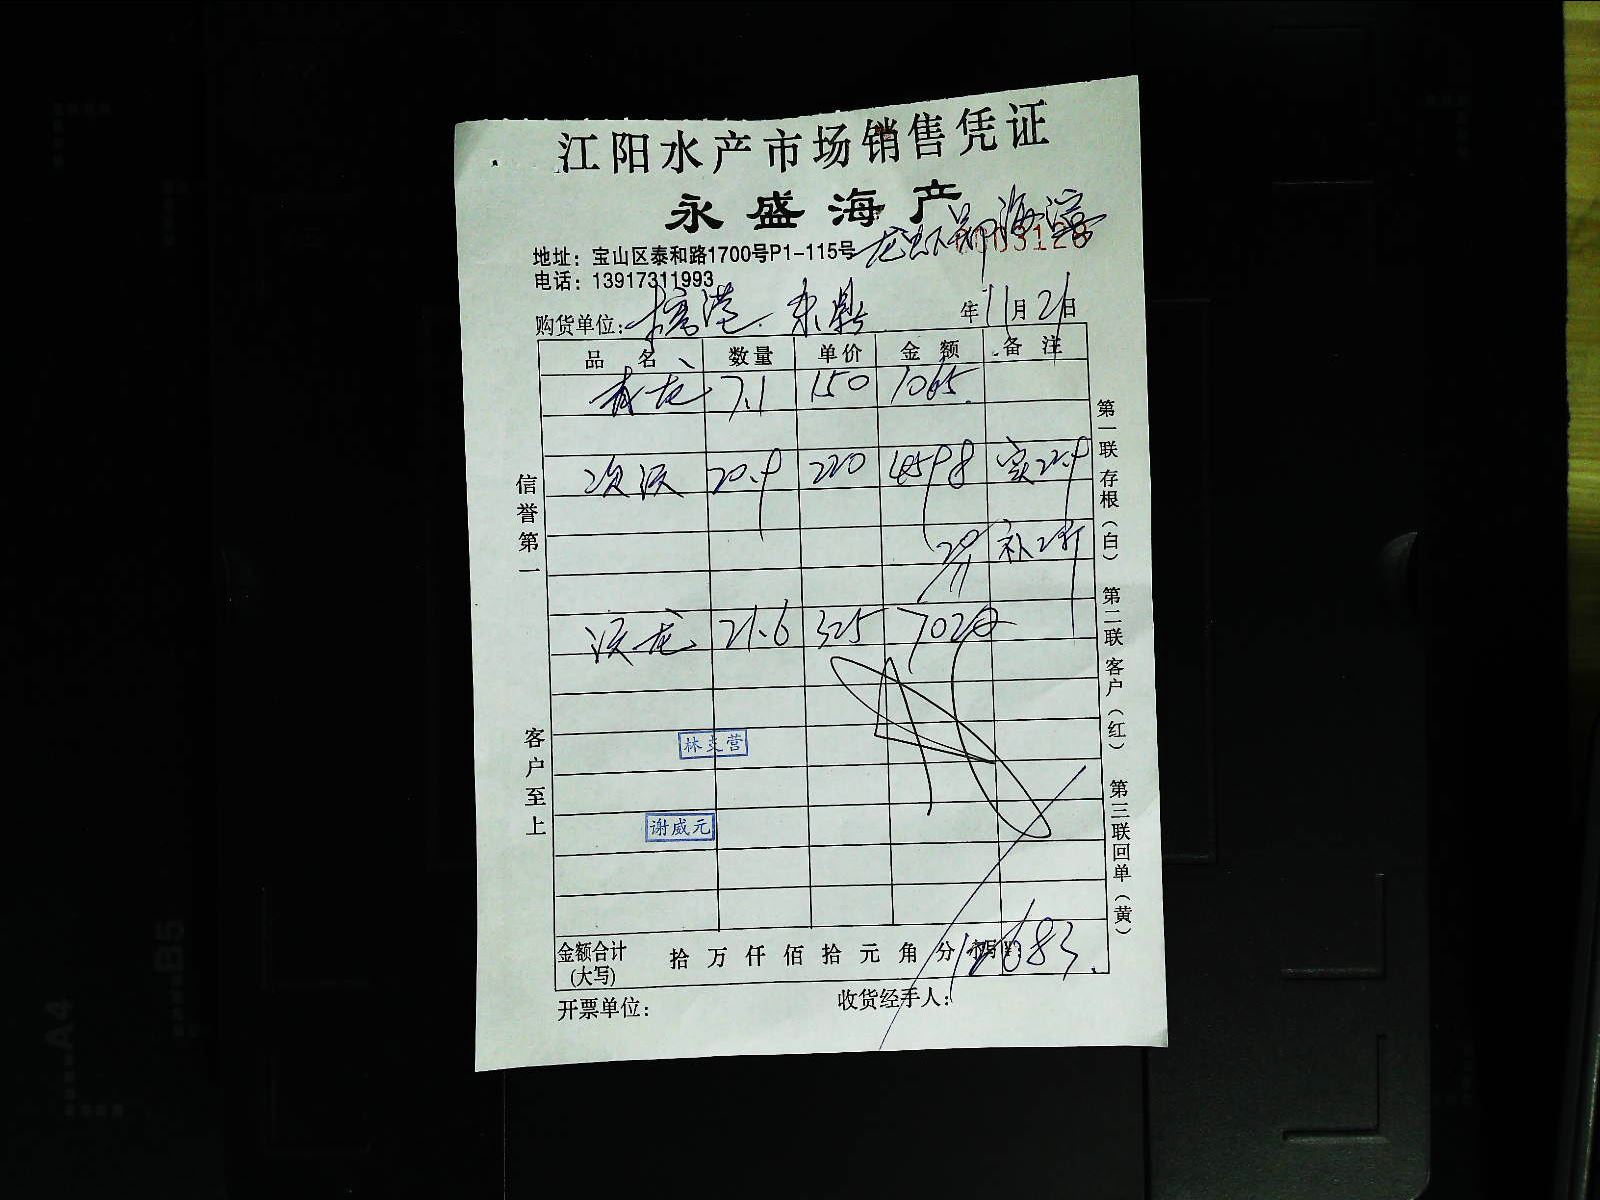 江阳水产市场销售凭证
永盛海产
地址：宝山区泰和路1700号P1-115号 龙虾 郑海滨
电话：13917311993
购货单位： 年11月21日
品名 数量 单价 金额 备注
青龙 7.1 150 1065.
次沃 20.9 220 4598 实22.9
补2斤
沃龙 21.6 325 7020
林 营
谢威元
金额合计(大写) 拾万仟佰拾元角分 12683.
开票单位： 收货经手人：
信誉第一
客户至上
第一联存根（白） 第二联客户（红） 第三联回单（黄）